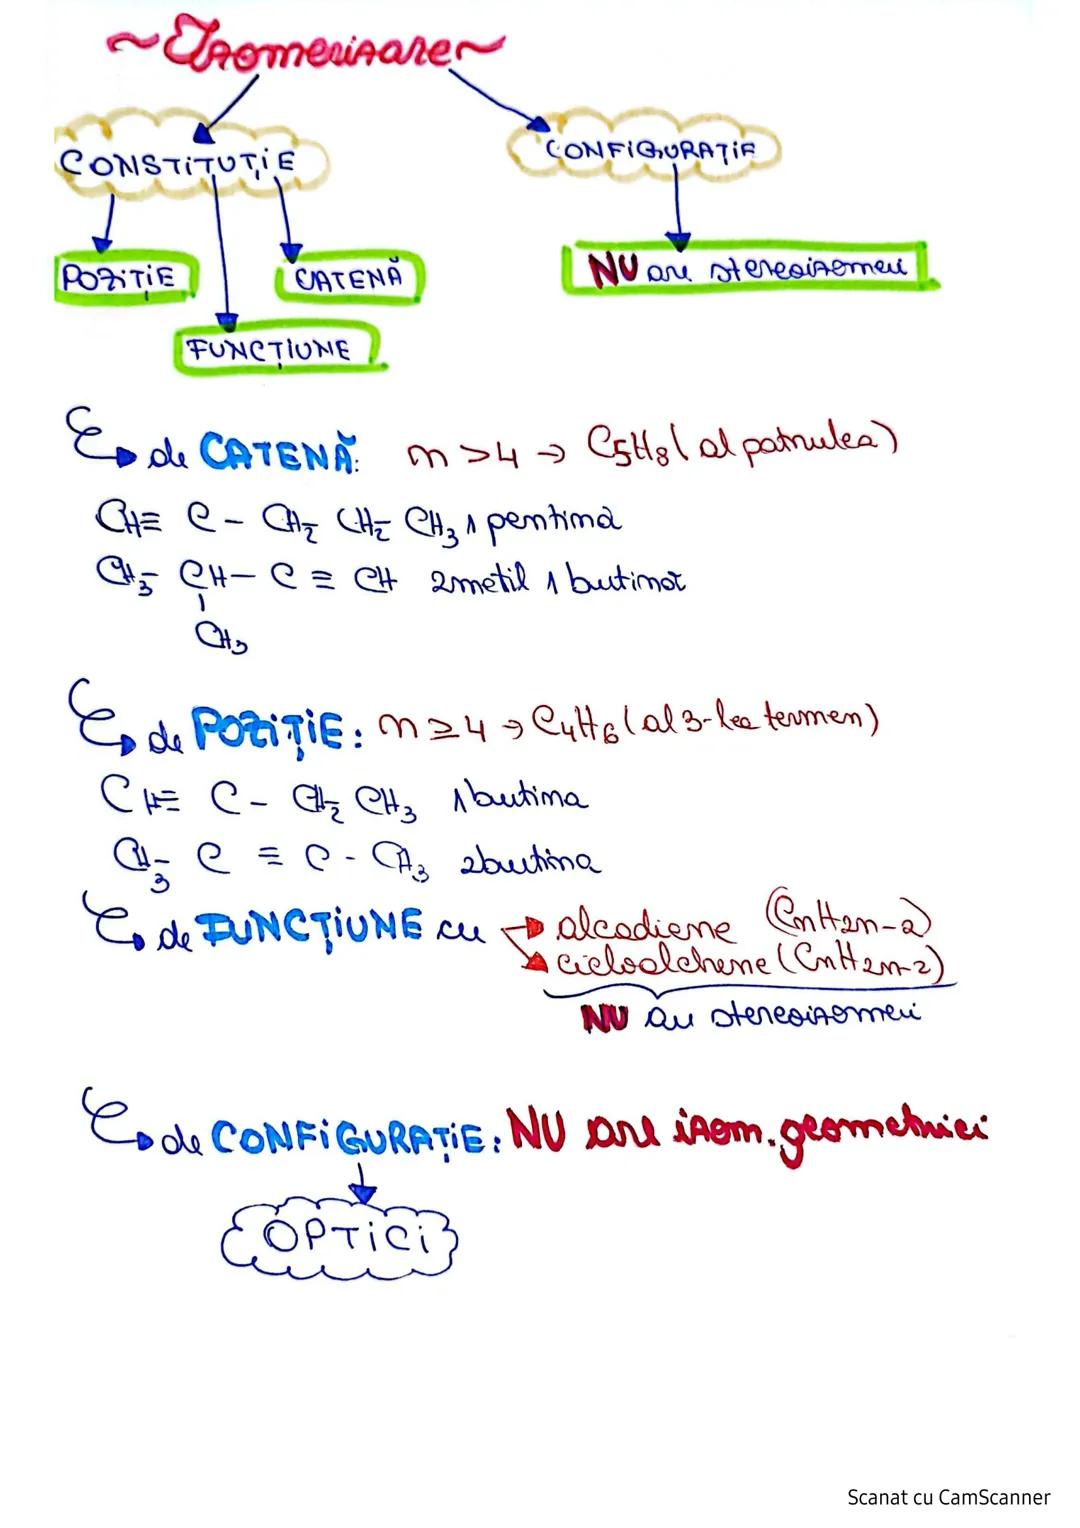 ~Izomerizare~
CONSTITUȚIE
CONFIGURAȚIE
POZIȚIE
CATENĂ
NU are stereoizomeri
FUNCȚIUNE
de CATENĂ: n >4 → C5H8 (al patrulea)
CH≡ C - CH2 CH2 CH3 1 pentina
CH3- CH- C ≡ CH 2metil 1 butina
CH3
de POZIȚIE: n ≥4 → C4H6 (al 3-lea termen)
CH≡ C - CH2 CH3 1butina
CH3- C ≡ C - CH3 2butina
de FUNCȚIUNE cu alcadiene (CnH2n-2)
cicloalchene (CnH2n-2)
NU au stereoizomeri
de CONFIGURAȚIE: NU are izom. geometrici
OPTICI
Scanat cu CamScanner